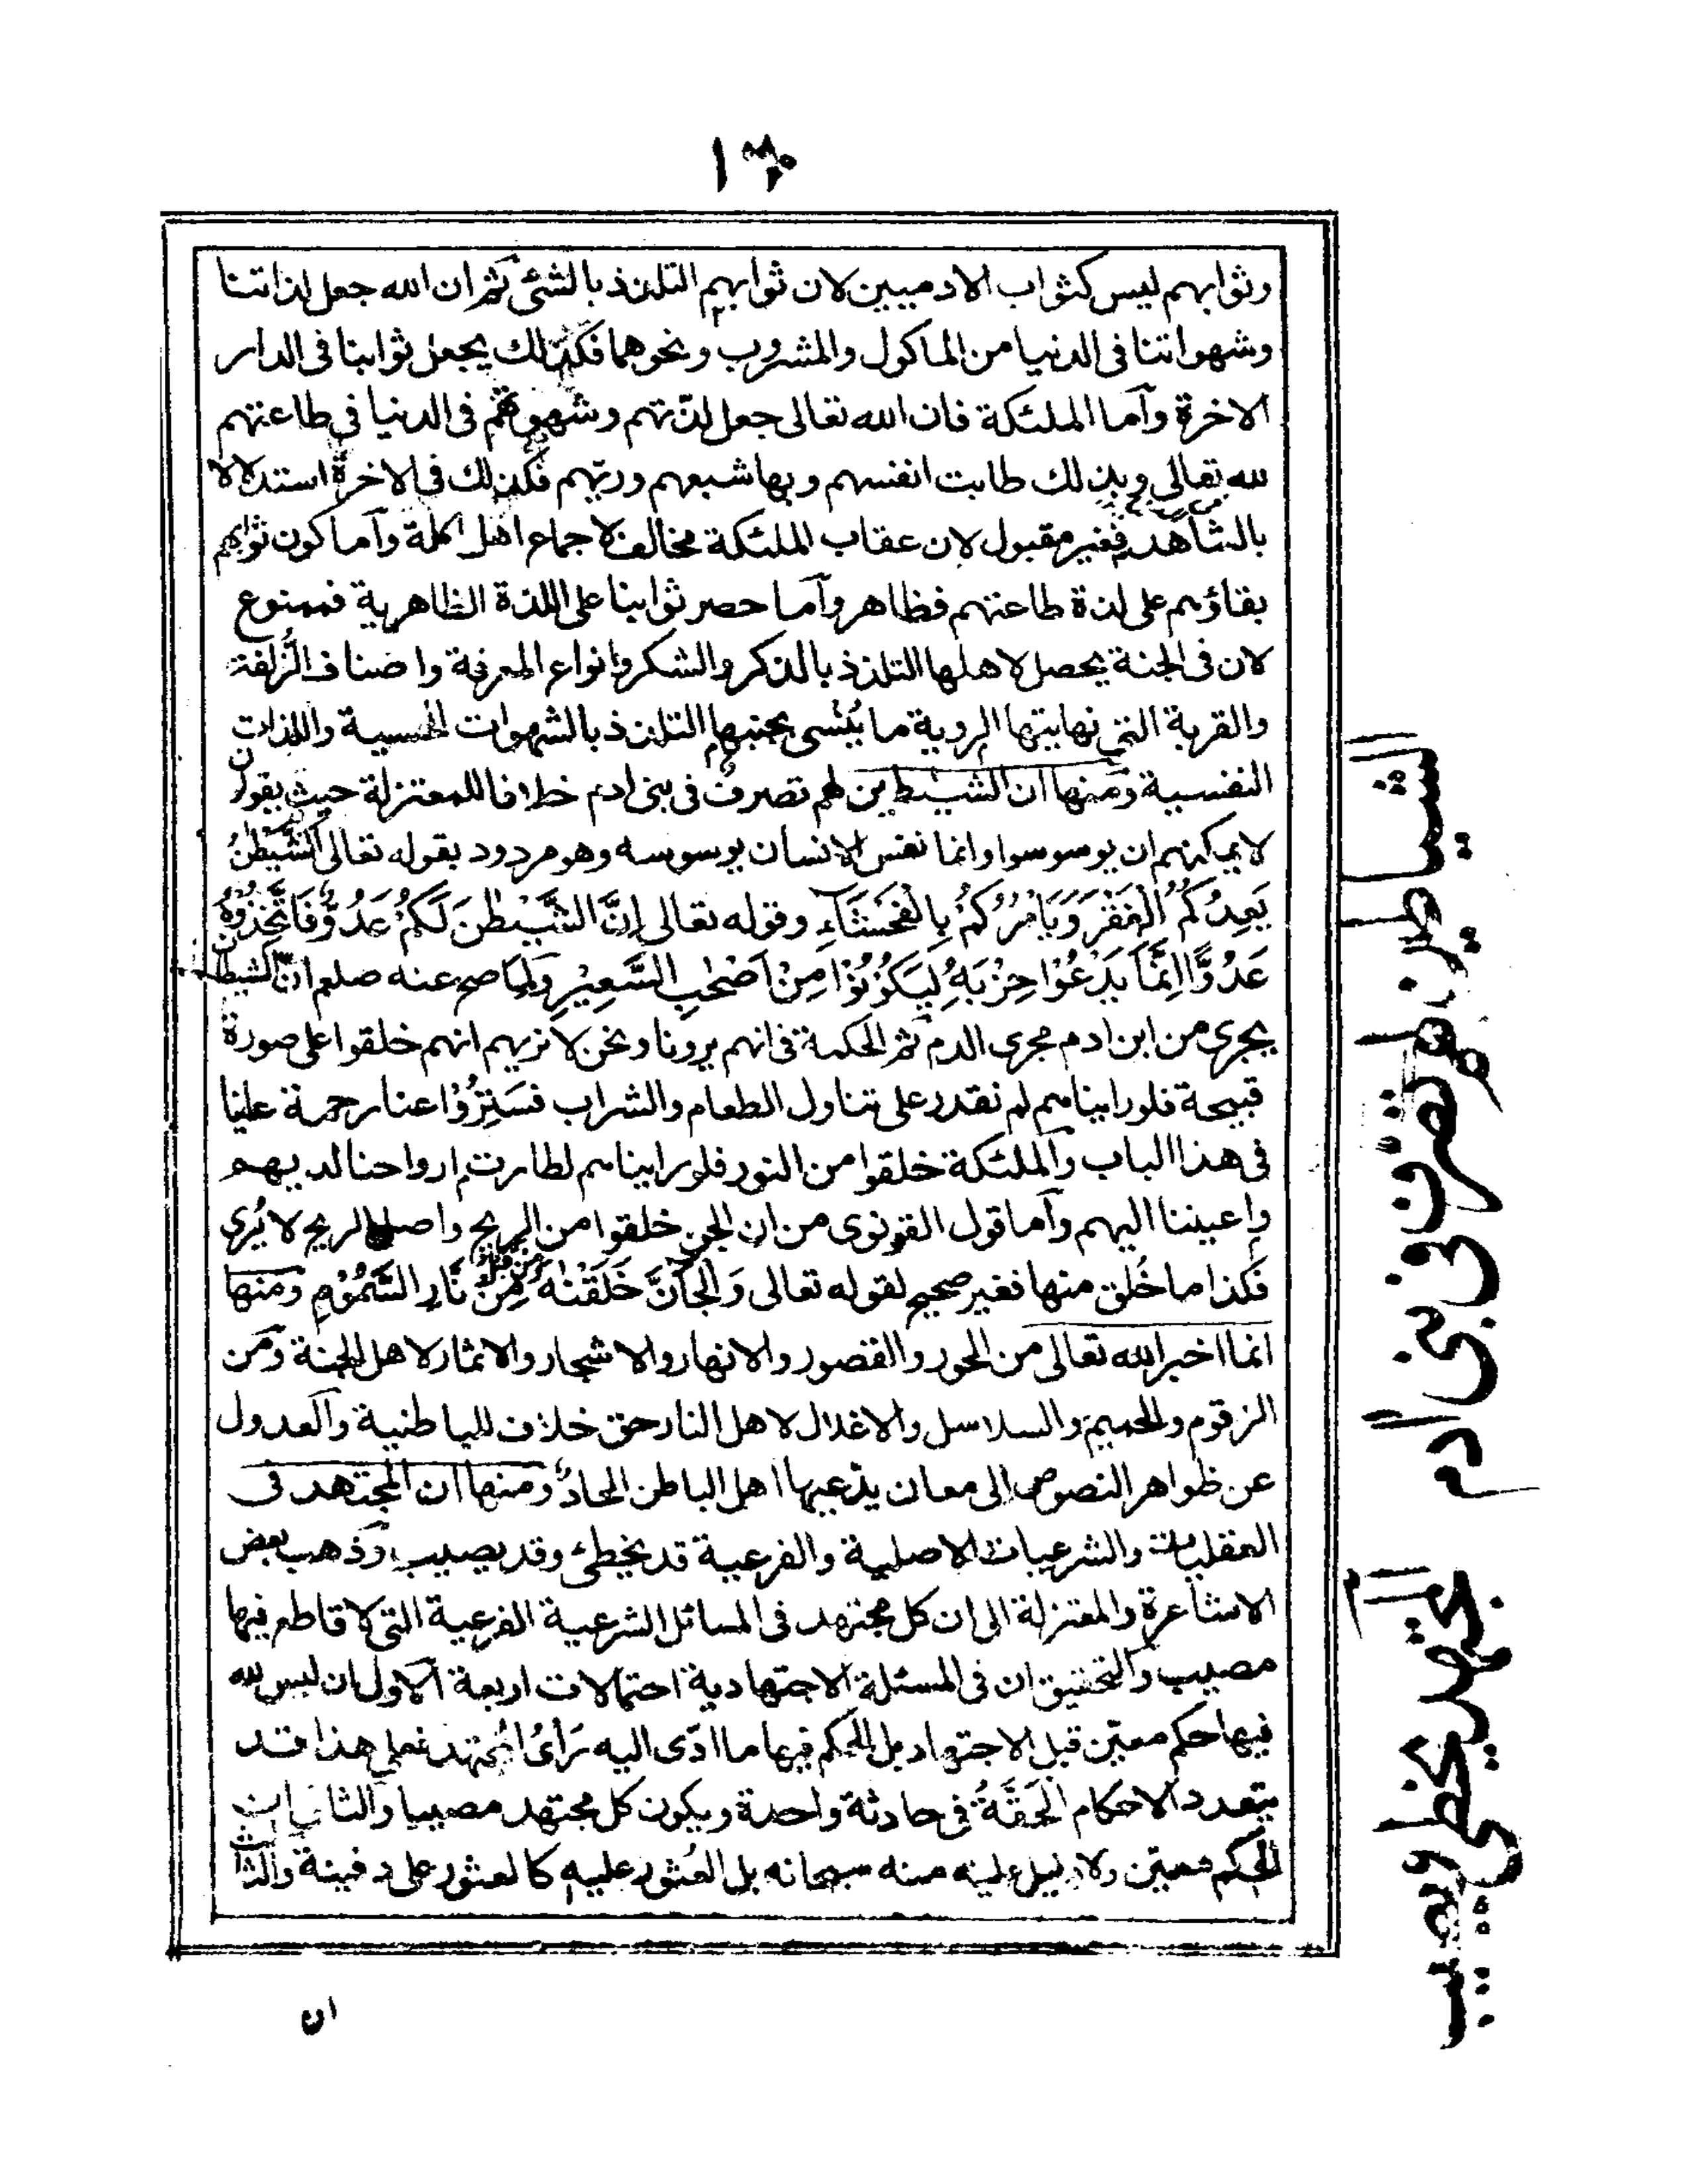 ١٦٠
وثوابهم ليس كثواب الادميين لان ثوابهم التلذذ بالشئ ثم ان الله جعل لذاتنا
وشهواتنا فى الدنيا من الماكول والمشروب ونحوهما فكذلك يجعل ثوابنا فى الدار
الاخرة وآما الملئكة فان الله تعالى جعل لذّتهم وشهوتهم فى الدنيا فى طاعتهم
لله تعالى وبذلك طابت انفسهم وبها شبعهم وريّهم فكذلك فى الاخرة استدلالا
بالشاهد فغير مقبول لان عقاب الملئكة مخالف لاجماع اهل الملة وآما كون ثوابهم
بقاؤهم على لذة طاعتهم فظاهر وآما حصر ثوابنا على اللذة الظاهرية فممنوع
لان فى الجنة يحصل لاهلها التلذذ بالذكر والشكر وانواع المعرفة واصناف الزُلفة
والقربة التى نهايتها الروية ما يُنْسى بجنبها التلذذ بالشهوات الحسية واللذات
النفسية ومنها ان الشيطين لهم تصرفٌ فى بنى ادم خلافا للمعتزلة حيث يقولون
لا يمكنهم ان يوسوسوا وانما نفس الانسان يوسوسه وهو مردود بقوله تعالى اَلشَّيْطٰنُ
يَعِدُكُمُ الْفَقْرَ وَيَامُرُكُمْ بِالْفَحْشَآءِ وقوله تعالى اِنَّ الشَّيْطٰنَ لَكُمْ عَدُوٌّ فَاتَّخِذُوْهُ
عَدُوًّا اِنَّمَا يَدْعُوْا حِزْبَهُ لِيَكُوْنُوْا مِنْ اَصْحٰبِ السَّعِيْرِ ولما صح عنه صلعم انّ الشيطن
يجرى من ابن ادم مجرى الدم ثم الحكمة فى انهم يرونا ونحن لا نريهم انهم خلقوا على صورة
قبيحة فلو راينا هم لم نقدر على تناول الطعام والشراب فَسَتِرُوْا عنا رحمة علينا
فى هذا الباب وآلملئكة خلقوا من النور فلو راينا هم لطارت ارواحنا لديهم
واعيننا اليهم وآما قول القونوى من ان الجن خلقوا من الريح واصل الريح لا يُرى
فكذا ما خُلق منها فغير صحيح لقوله تعالى وَالْجَآنَّ خَلَقْنٰهُ مِنْ قَبْلُ مِنْ نَارِ السَّمُوْمِ ومنها
انما اخبر الله تعالى من الحور والقصور والانهار والاشجار والاثمار لاهل الجنة ومن
الزقوم والحميم والسلاسل والاغلال لاهل النار حق خلاف للباطنية وآلعدول
عن ظواهر النصوص الى معان يدّعيها اهل الباطن الحادٌ ومنها ان المجتهد فى
العقليات والشرعيات الاصلية والفرعية قد يخطئ وقد يصيب وذهب بعض
الاشاعرة والمعتزلة الى ان كل مجتهد فى المسائل الشرعية الفرعية التى لا قاطع فيها
مصيب والتحقيق ان فى المسئلة الاجتهادية احتمالات اربعة آلاول ان ليس لله
فيها حكم معيّن قبل الاجتهاد بل الحكم فيها ما ادّى اليه رَأىُ المجتهد فعلى هذا قد
يتعدد الاحكام الْحَقَّةُ فى حادثة واحدة ويكون كل مجتهد مصيبا وآلثانى ان
الحكم معيّن ولا دليل عليه منه سبحانه بل العُثور عليه كالعثور على دفينة وآلثالث
ان
الشياطين لهم تصرف فى بنى آدم
المجتهد يخطى ويصيب